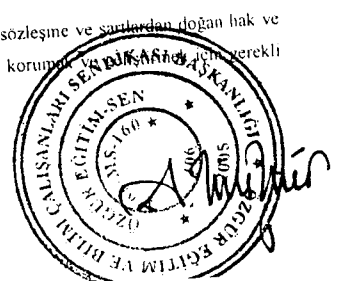 sözleşme ve şartlardan doğan hak ve
korumak ve geliştirmek için gerekli
ÖZGÜR EĞİTİM VE BİLİM ÇALIŞANLARI SENDİKASI BAŞKANLIĞI
ÖZGÜR EĞİTİM-SEN
MS-160